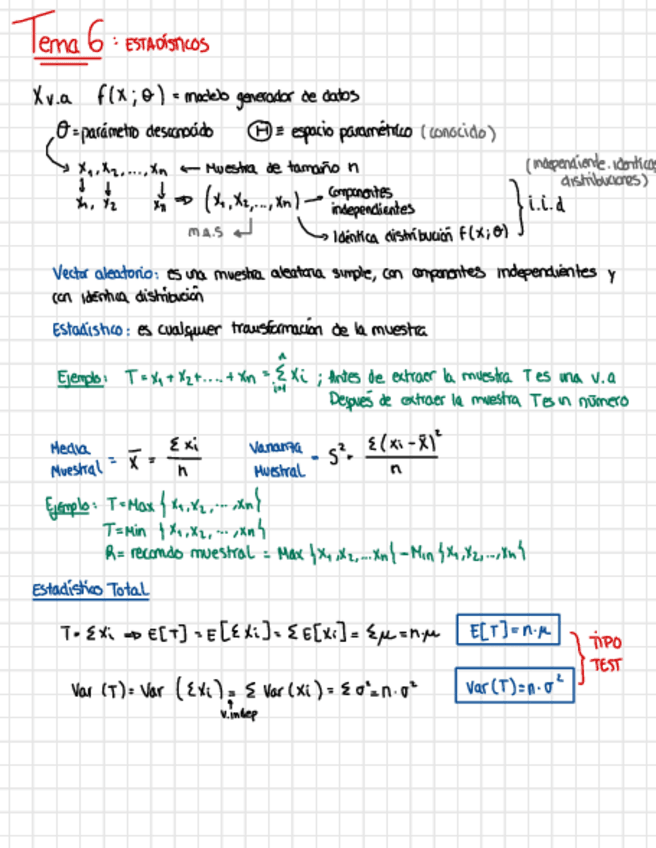 Tema 6: ESTADÍSTICOS
X v.a f(x; θ) = modelo generador de datos
θ = parámetro desconocido Ⓗ ≡ espacio paramétrico (conocido)
x₁, x₂, ..., xₙ ← Muestra de tamaño n (independiente. idénticas distribuciones)
↓ ↓ ↓
x₁, x₂ xₙ ⇒ (x₁, x₂, ..., xₙ) → Componentes independientes } i.i.d
m.a.s ↲ ↳ Idéntica distribución f(x; θ)
Vector aleatorio: es una muestra aleatoria simple, con componentes independientes y
con idéntica distribución
Estadístico: es cualquier transformación de la muestra
Ejemplo: T = x₁ + x₂ + .... + xₙ = Σⁿᵢ₌₁ xi ; Antes de extraer la muestra T es una v.a
Después de extraer la muestra T es un número
Media Muestral = x̄ = Σxi / n Varianza Muestral = S² = Σ(xi - x̄)² / n
Ejemplo: T = Max {x₁, x₂, ..., xn}
T = Min {x₁, x₂, ..., xn}
R = recorrido muestral = Max {x₁, x₂, ... xn} - Min {x₁, x₂, ..., xn}
Estadístico Total
T = Σxi ⇒ E[T] = E[Σxi] = ΣE[xi] = Σμ = n·μ E[T] = n·μ } TIPO TEST
Var (T) = Var (Σxi) = Σ Var (xi) = Σσ² = n·σ² Var(T) = n·σ²
↑
v.indep